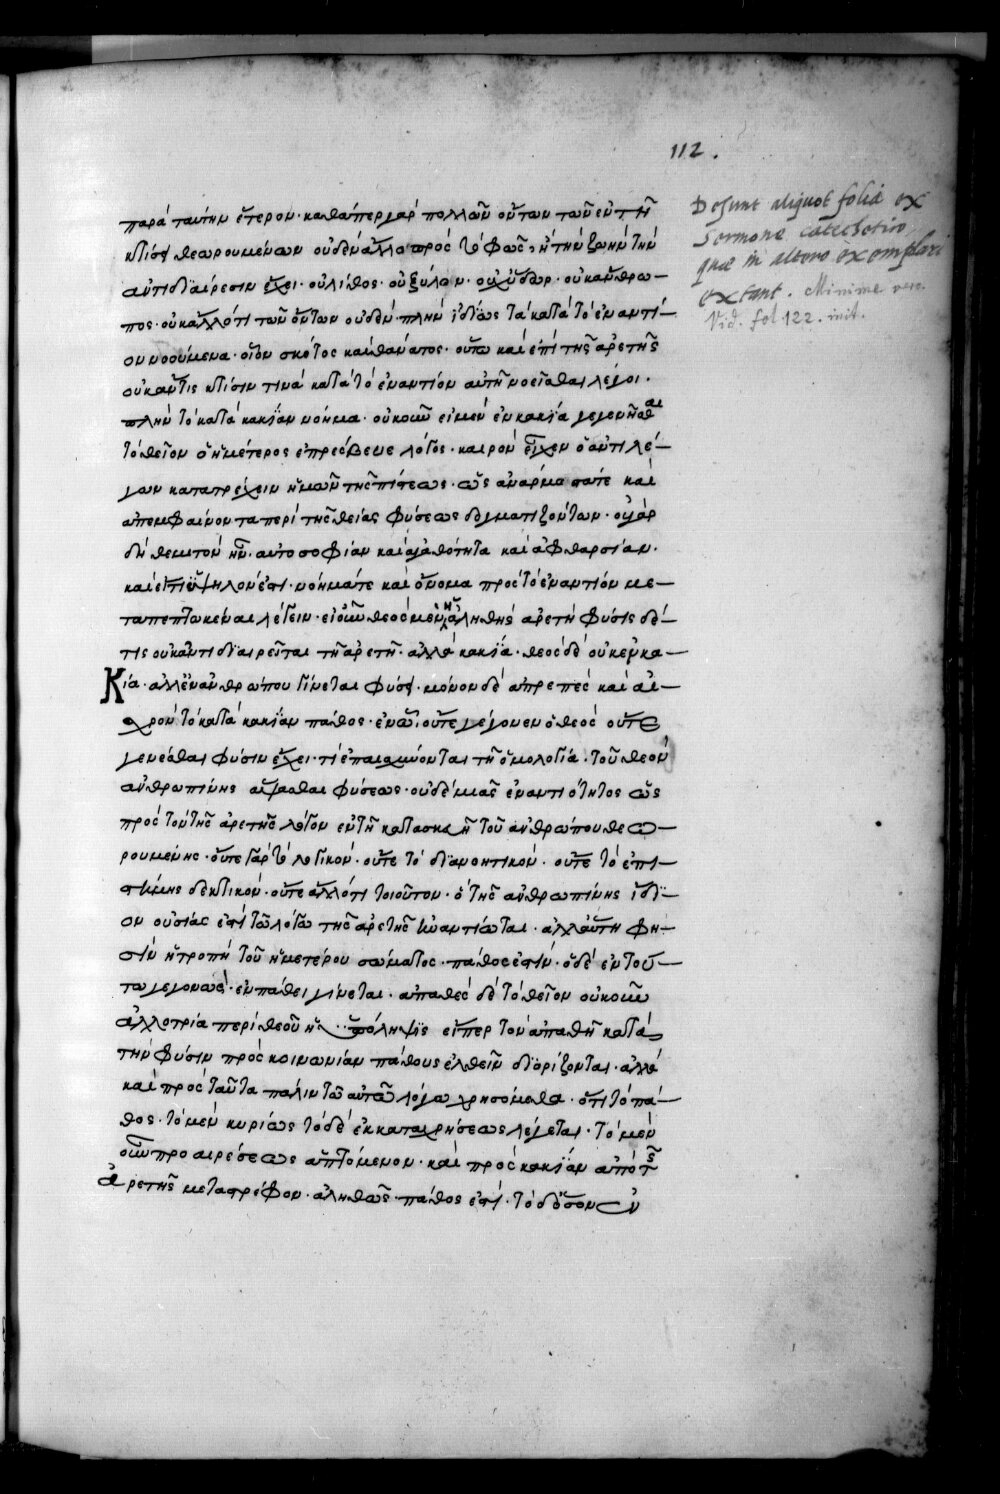 112.
Desunt aliquot folia ex
Sermone catechetico,
quæ in altero exemplari
extant. Minime vero.
Vid. fol 122. init.
παρὰ ταύτην ἕτερον· καθάπερ γὰρ πολλῶν ὄντων τῶν ἐν τῇ
κτίσει θεωρουμένων οὐδὲν ἄλλο πρὸς τὸ φῶς, ἢ τὴν ζωὴν τὴν
ἀντιδιαίρεσιν ἔχει· οὐ λίθος· οὐ ξύλον· οὐχ ὕδωρ· οὐκ ἄνθρω-
πος· οὐκ ἄλλό τι τῶν ὄντων οὐδὲν· πλὴν ἰδίως τὰ κατὰ τὸ ἐναντί-
ον νοούμενα· οἷον σκότος καὶ θάνατος· οὕτω καὶ ἐπὶ τῆς ἀρετῆς
οὐκ ἄν τις κτίσιν τινὰ κατὰ τὸ ἐναντίον αὐτῇ νοεῖσθαι λέγοι·
πλὴν τὸ κατὰ κακίαν νόημα· οὐκοῦν εἰ μὲν ἐν κακίᾳ γεγενῆσθαι
τὸ θεῖον ὁ ἡμέτερος ἐπρέσβευε λόγος· καιρὸν εἶχεν ὁ ἀντιλέ-
γων κατατρέχειν ἡμῶν τῆς πίστεως· ὡς ἀνάρμοστά τε καὶ
ἀπεμφαίνοντα περὶ τῆς θείας φύσεως δογματιζόντων· οὐ γὰρ
δὴ θεμιτὸν ἦν· αὐτοσοφίαν καὶ ἀγαθότητα καὶ ἀφθαρσίαν·
καὶ εἴ τι ὑψηλόν ἐστι· νόημά τε καὶ ὄνομα πρὸς τὸ ἐναντίον με-
ταπεπτωκέναι λέγειν· εἰ οὖν θεὸς μὲν ἡ ἀληθὴς ἀρετὴ φύσις δέ
τις οὐκ ἀντιδιαιρεῖται τῇ ἀρετῇ· ἀλλὰ κακία· θεὸς δὲ οὐκ ἐν κα-
κία· ἀλλ' ἐν ἀνθρώπου γίνεται φύσει· μόνον δὲ ἀπρεπὲς καὶ αἰ-
σχρὸν τὸ κατὰ κακίαν πάθος· ἐν ᾧ οὔτε γέγονεν ὁ θεὸς οὔτε
γενέσθαι φύσιν ἔχει· τί ἐπαισχύνονται τῇ ὁμολογίᾳ· τοῦ θεὸν
ἀνθρωπίνης ἅψασθαι φύσεως· οὐδεμιᾶς ἐναντιότητος ὡς
πρὸς τὸν τῆς ἀρετῆς λόγον ἐν τῇ κατασκευῇ τοῦ ἀνθρώπου θεω-
ρουμένης· οὔτε γὰρ τὸ λογικὸν· οὔτε τὸ διανοητικὸν· οὔτε τὸ ἐπι-
στήμης δεκτικὸν· οὔτε ἄλλό τι τοιοῦτον· ὃ τῆς ἀνθρωπίνης ἴδι-
ον οὐσίας ἐστὶ τῷ λόγῳ τῆς ἀρετῆς ἠναντίωται· ἀλλ' αὕτη φη-
σὶν ἡ τροπὴ τοῦ ἡμετέρου σώματος· πάθος ἐστὶν· ὁ δὲ ἐν τού-
τῳ γεγονὼς· ἐν πάθει γίνεται· ἀπαθὲς δὲ τὸ θεῖον οὐκοῦν
ἀλλοτρία περὶ θεοῦ ἡ ὑπόληψις εἴπερ τὸν ἀπαθῆ κατὰ
τὴν φύσιν πρὸς κοινωνίαν πάθους ἐλθεῖν διορίζονται· ἀλλὰ
καὶ πρὸς ταῦτα πάλιν τῷ αὐτῷ λόγῳ χρησόμεθα· ὅτι τὸ πά-
θος· τὸ μὲν κυρίως τὸ δὲ ἐκ καταχρήσεως λέγεται· τὸ μὲν
οὖν προαιρέσεως ἁπτόμενον· καὶ πρὸς κακίαν ἀπὸ τῆς
ἀρετῆς μεταστρέφον· ἀληθῶς πάθος ἐστὶ· τὸ δ' ὅσον ἐν